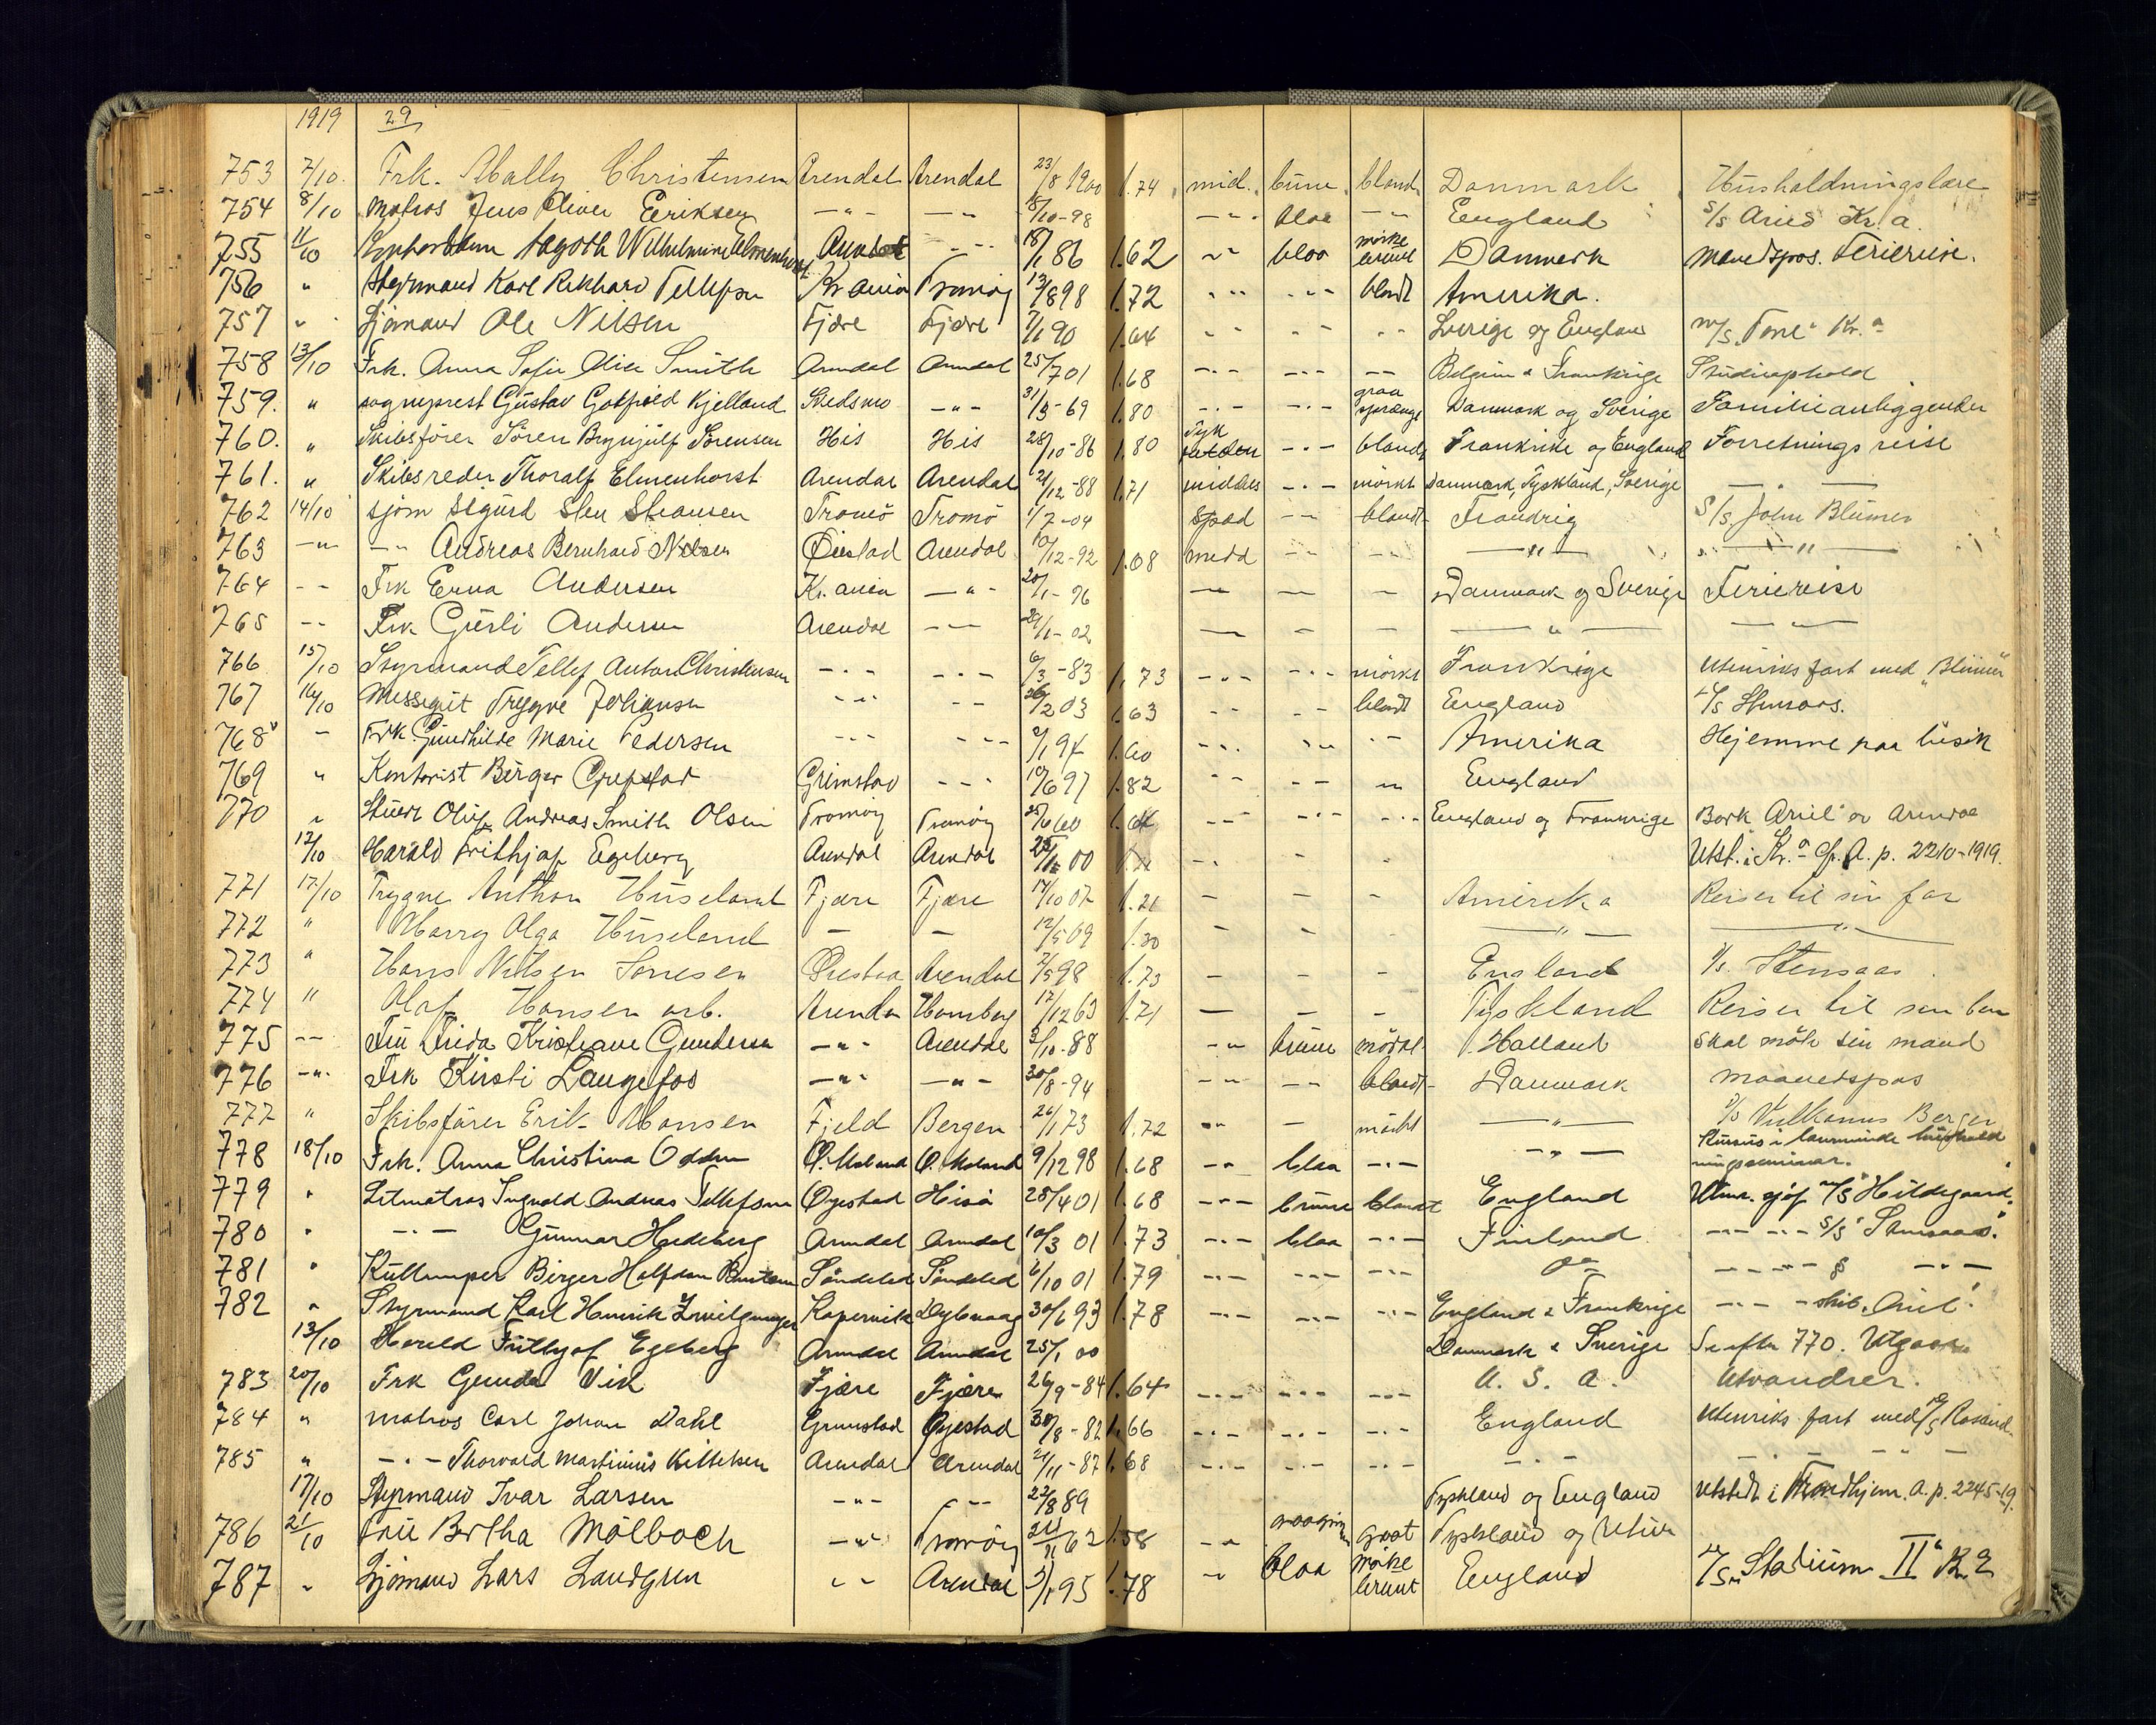 1919 29
753 7/10. Frk. Mally Christensen Arendal Arendal 23/8 1900 1.74 mid. brune blond Danmark Husholdningslære
754 8/10 Matros Jens Oliver Eriksen -"- -"- /10-98 -"- blaa -"- England S/S Kr.a.
755 11/10 Wilhelmine Elmenhorst Arendal -"- 18/1 86 1.62 -"- blaa mørke brunt Danmark Maanedspas. Feriereise.
756 " Styrmand Karl Rikhard Tellefsen Kr.ania Tromøy 13/8 98 1.72 -"- -"- blondt Amerika.
757 " Sjømand Ole Nilsen Fjære Fjære 7/1 90 1.64 " " " Sverige og England M/S. Kr.a
758 13/10 Frk. Anna Sofie Alice Smith Arendal Arendal 25/7 01 1.68 -"- -"- -- Belgien & Frankrige Studieophold
759. " sogneprest Gustav Gotfried Kjelland Skedsmo -"- 31/3-69 1.80 -"- -"- graa sprængt Danmark og Sverige Familieanliggender
760. " Skibsfører Søren Brynjulf Sørensen His His 28/10-86 1.80 Tyk -"- blondt Frankrike og England Forretningsreise
761. " Skibsreder Thoralf Elmenhorst Arendal Arendal 21/12-88 1.71 middels -"- mørkt Danmark, Tyskland, Sverige -"-
762 14/10 sjøm Sigurd Tromø Tromø 1/7-04 Spæd -- blondt Frankrig S/S. John Blumer
763 -"- -"- Andreas Bernhard Nilsen Øiestad Arendal 10/12-92 1.68 midd -- -- -"- -"-
764 -- Frk Erna Andersen Kr.ania -"- 20/1-96 — — — Danmark og Sverige Feriereise
765 -- Frk Gusli Andersen Arendal -- 29/1-02 — — — -"- -"-
766 15/10 Styrmand Tellef Anton Christensen -"- -"- 6/3-83 1.73 -"- -"- mørkt Frankrige Utenriks fart med "Blumer"
767 16/10 Messegut Trygve Johansen -"- -- 26/2 03 1.63 -- -- blondt England S/S Stensaas.
768 - Frk. Gunhilde Marie Pedersen -"- -"- 9/1 94 1.60 -"- -"- -"- Amerika Hjemme paa besøk
769 " Kontorist Birger Grefstad Grimstad -"- 10/6 97 1.82 -"- -- -"- England
770 " Stuert Oluf Andreas Smith Olsen Tromøy Tromøy 25/6 60 1.64 -"- -"- -"- England og Frankrige Bark "Ariel" av Arendal
13/10 Harald Frithjof Egeberg Arendal Arendal 25/1 00 -- - - Utst. i Kr.a Cf. A. p. 2210-1919.
771 17/10 Trygve Anthon Huseland Fjære Fjære 17/10 07 1.21 - - - Amerika Reiser til sin far
772 " Harry Olga Huseland — — 12/5 09 1.30 - - - -"- -"-
773 " Hans Nilsen Sørensen Øiestad Arendal 2/5 98 1.73 - - - England S/S. Stensaas.
774 " Olaf Hansen arb. Arendal Hamburg 17/12 63 1.71 — - - Tyskland Reiser til
775 -- Fru Frida Kristiane Gundersen -"- Arendal 3/10-88 -"- brune mørkt Holland Skal møte sin mand
776 -"- Frk Kirsti Langefos -"- -"- 30/8-94 -"- -- blondt Danmark Maanedspas
777 " Skibsfører Erik Hansen Fjeld Bergen 26/1 73 1.72 -"- - mørkt -"- S/S Vulkanus Bergen
778 18/10 Frk. Anna Christina Odden Ø. Moland Ø. Moland 9/12 98 1.68 -"- blaa -"- -"- Kursus i
779 " Letmatros Ingvald Andreas Tellefsen Øyestad Hisø 28/4 01 1.68 -"- brune blondt England Utenr. sjøf. M/S "Hildegaard".
780 " -"- Gunnar Hedeberg Arendal Arendal 10/3 01 1.73 -"- blaa -"- Finland -"- -"- S/S "Stensaas".
781 " Kullemper Birger Halfdan Søndeled Søndeled 6/10 01 1.79 -"- -"- -"- do -"- -"-
782 " Styrmand Karl Henrik Zwilgmeyer Kopervik Dybvaag 30/6 93 1.78 -"- -"- -"- England & Frankrige -"- skib. "Ariel".
13/10 Harald Frithjof Egeberg Arendal Arendal 25/1 00 Danmark & Sverige Se efter 770. Utgaar
783 20/10 Frk Gunda Vik Fjære Fjære 26/9-84 1.64 -"- -"- -"- U. S. A. Utvandrer.
784 " matros Carl Johan Dahl Grimstad Øyestad 30/8-82 1.66 -"- -"- -"- England Utenriks fart med D/S Rosand
785 " -"- Thorvald Martinius Kittelsen Arendal Arendal 21/11-87 1.68 -"- -"- -"- -"- -"-
17/10 Styrmand Ivar Larsen -"- -"- 22/8 89 Tyskland og England Utstedt i Trondhjem. A. p. 2245-19.
786 21/10 Frue Bertha Mølbach -"- Tromøy 24/11 62 1.58 -"- graagrøn graat Tyskland og
787 " Sjømand Lars Landgren -"- Arendal 3/1 95 1.78 -"- blaa mørke brunt England M/S "Stadium II"